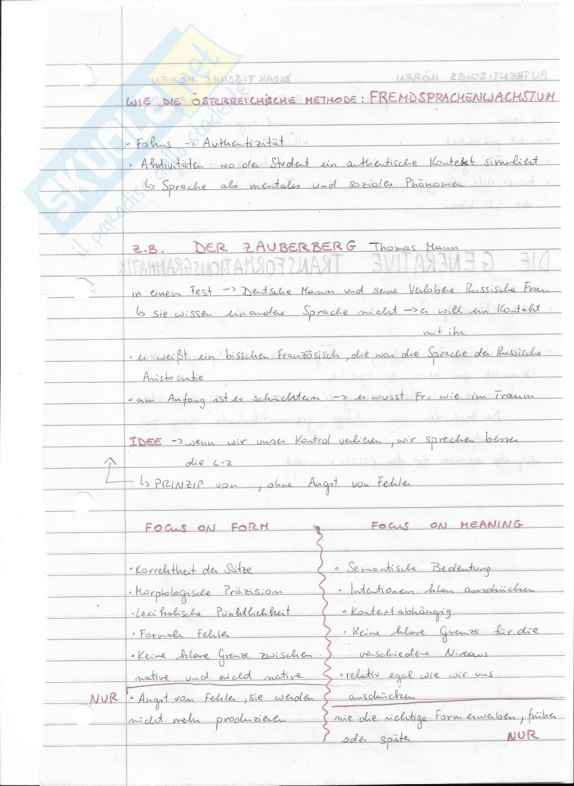 WIE DIE ÖSTERREICHISCHE METHODE: FREMDSPRACHENWACHSTUM
• Fokus → Authentizität
• Aktivitäten wo der Student ein authentische Kontext simuliert
↳ Sprache als mentales und soziales Phänomen
Z.B. DER ZAUBERBERG Thomas Mann
DIE GENERATIVE TRANSFORMATIONSGRAMMATIK
in einem Test → Deutsche Mann und seine Verlobene Russische Frau
↳ sie wissen einandere Sprache nicht → er will ein Kontakt
mit ihr
• er weißt ein bisschen Französisch, die war die Sprache der Russische
Aristocratie
• am Anfang ist er schüchtern → er wusst Fr. wie im Traum
IDEE → wenn wir unser Kontrol verlieren, wir sprechen besser
die L-2
↳ PRINZIP von , ohne Angst von Fehler
FOCUS ON FORM
• Korrektheit der Sätze
• Morphologische Präzision
• Lexikalische Pünktlichkeit
• Formale Fehler
• Keine klare Grenze zwischen
native und nicht native
NUR • Angst vom Fehler, sie werden
nicht mehr produzieren
FOCUS ON MEANING
• Semantische Bedeutung
• Intentionen klar ausdrücken
• Kontextabhängig
• Keine klare Grenze für die
verschiedene Niveaus
• relativ egal wie wir uns
ausdrücken
nie die richtige Form erwerben, früher
oder später NUR
skuola.net